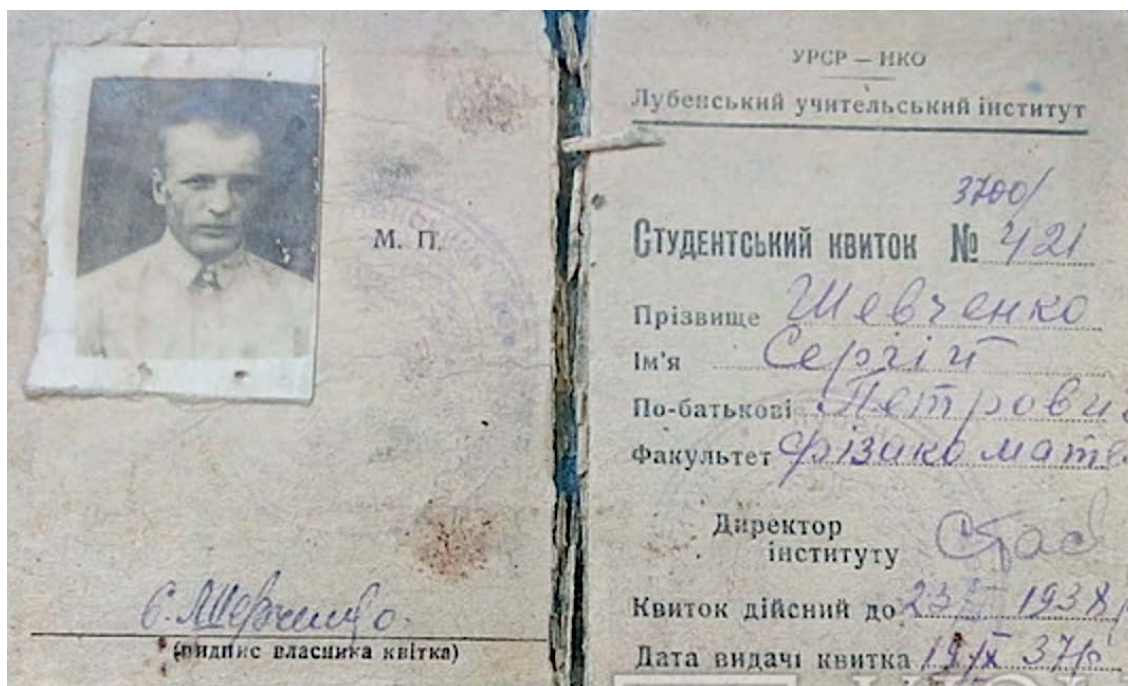 М. П.
С. Шевченко.
(підпис власника квітка)
УРСР — НКО
Лубенський учительський інститут
3700/
Студентський квиток № 421
Прізвище Шевченко
Ім'я Сергій
По-батькові Петрович
Факультет Фізикомате
Директор
інституту
Квиток дійсний до 23 1938 р
Дата видачі квитка 19/IX 37 р